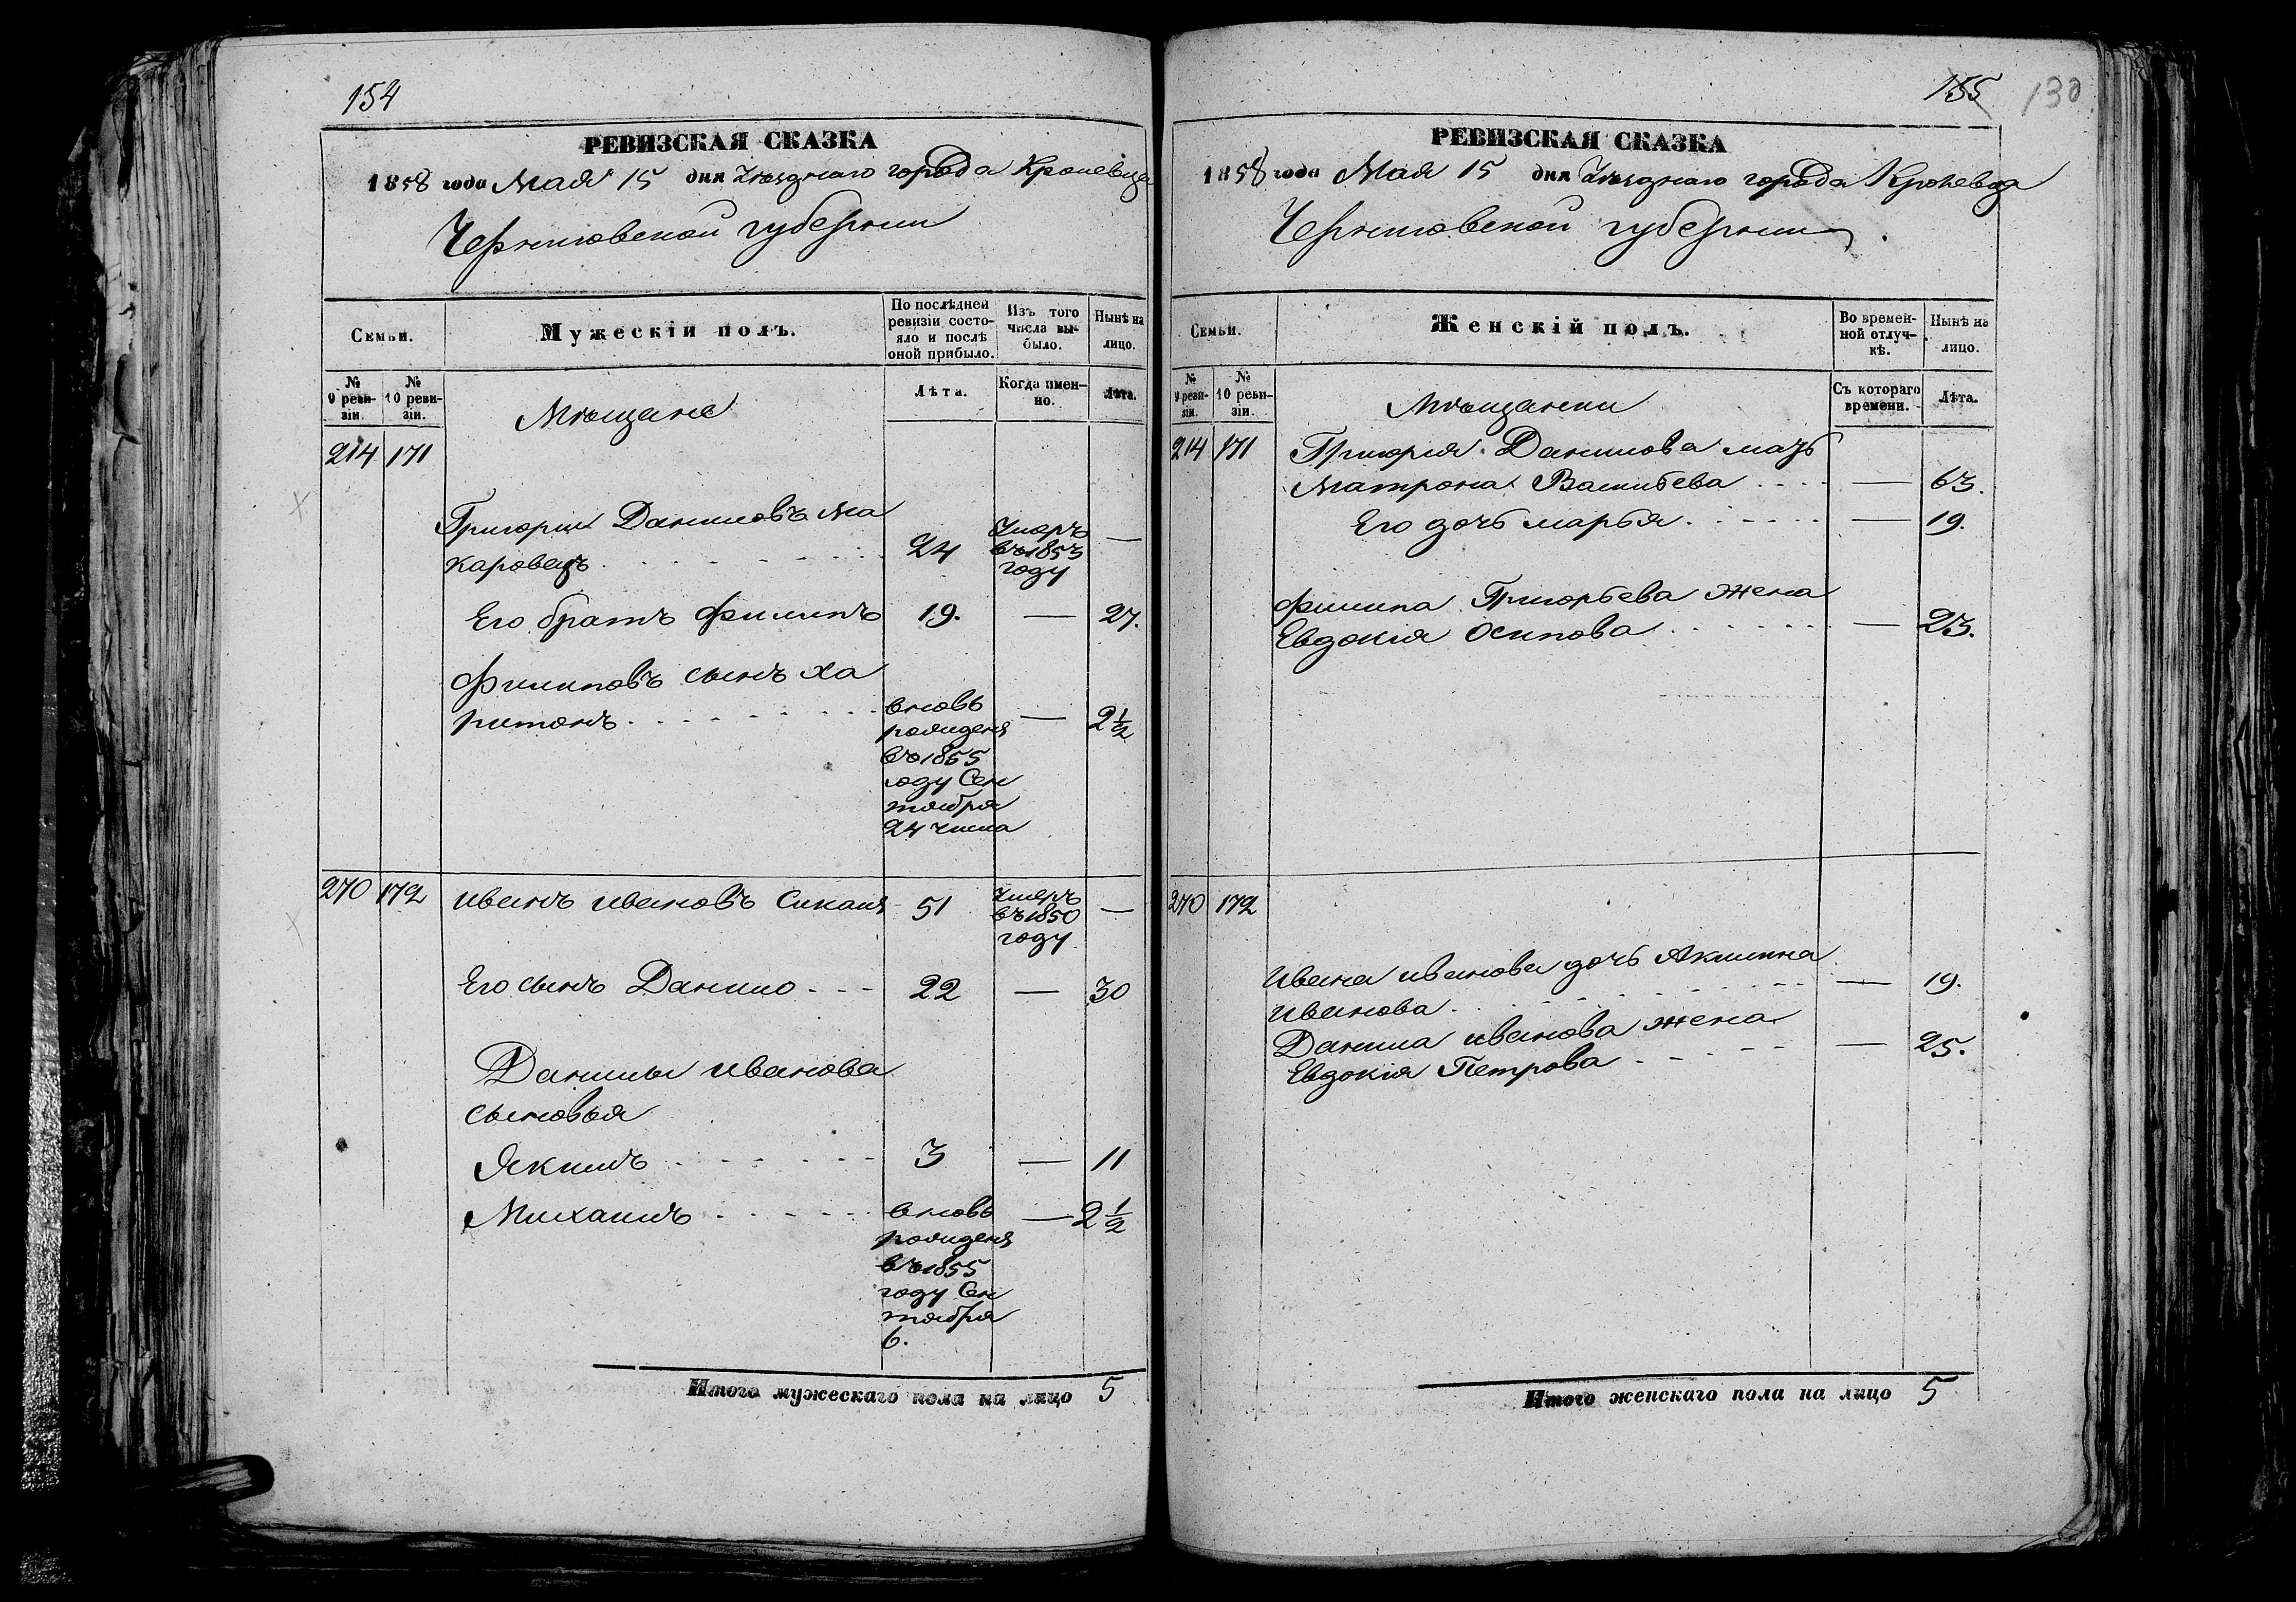 154
РЕВИЗСКАЯ СКАЗКА
1858 года Мая 15 дня Уѣзднаго города Кролевца
Черниговской губернии
Семьи.
Мужескій полъ.
По послѣдней ревизіи состояло и послѣ оной прибыло.
Изъ того числа выбыло.
Нынѣ на лицо.
№ 9 ревизіи.
№ 10 ревизіи.
Мѣщане
Лѣта.
Когда имен-
но.
Лѣта.
214 171
Григорий Даниловъ Ма
каровецъ 24 Умеръ въ 1853 году —
Его братъ Филипъ 19. — 27.
Филиповъ сынъ Ха
ритонъ вновь — 2½
рожденъ
въ 1855
году Сен
тября
24 числа
270 172 Иванъ Ивановъ 51 Умеръ въ 1850 году —
Его сынъ Данило 22 — 30
Данилы Иванова
сыновья
Якимъ 3 — 11
Михаилъ вновь — 2½
рожденъ
въ 1855
году Сен
тября
6.
Итого мужескаго пола на лицо 5
155 130
РЕВИЗСКАЯ СКАЗКА
1858 года Мая 15 дня Уѣзднаго города Кролевца
Черниговской губернии
Семьи.
Женскій полъ.
Во времен-
ной отлуч-
кѣ.
Нынѣ на
лицо.
№ 9 ревизіи.
№ 10 ревизіи.
Мѣщанки
Съ котораго
времени.
Лѣта.
214 171 Григория Данилова мать
Матрона Васильева — 63.
Его дочь Марья — 19.
Филипа Григорьева жена
Евдокия Осипова — 23.
270 172
Ивана Иванова дочь Акилина
Иванова — 19.
Данила Иванова жена
Евдокия Петрова — 25.
Итого женскаго пола на лицо 5